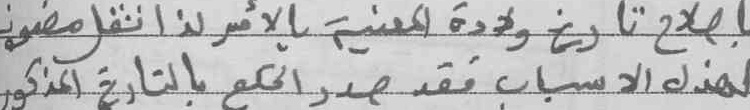 باصلاح تاريخ ولادة المعنية بالأمر لذا ننقل مضمون
لهذه الاسباب فقد صدر الحكم بالتاريخ المذكور